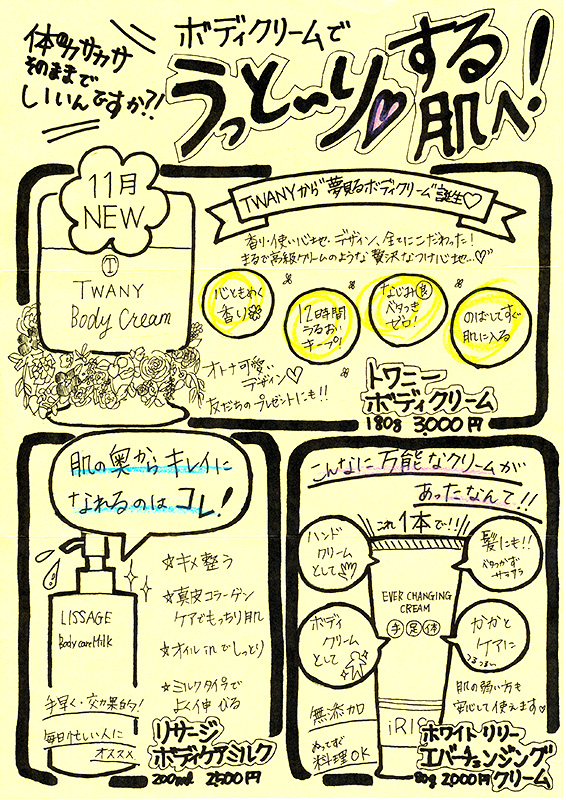 体のカサカサ
そのままで
いいんですか?!
ボディクリームで
うっと〜り♡する
肌へ!
11月
NEW
TWANY
Body Cream
TWANYから"夢見るボディクリーム"誕生♡
香り・使い心地・デザイン、全てにこだわった!
まるで高級クリームのような贅沢なつけ心地…♡"
心ときめく
香り
12時間
うるおい
キープ!
なじみ良
ベタつき
ゼロ!
のばしてすぐ
肌に入る
オトナ可愛い
デザイン♡
友だちのプレゼントにも!!
トワニー
ボディクリーム
180g 3,000円
肌の奥からキレイに
なれるのはコレ!
LISSAGE
Body care Milk
☆キメ整う
☆真皮コラーゲン
ケアでもっちり肌
☆オイルinでしっとり
☆ミルクタイプで
よく伸びる
手早く・効果的!
毎日忙しい人に
オススメ
リサージ
ボディケアミルク
200ml 2,500円
こんなに万能なクリームが
あったなんて!!
これ1本で!!
ハンド
クリーム
として
髪にも!!
ベタつかず
サラサラ
ボディ
クリーム
として
かかと
ケアに
つるつる〜
EVER CHANGING
CREAM
手 足 体
iRIS
無添加
ぬってすぐ
料理OK
肌の弱い方も
安心して使えます♡
ホワイトリリー
エバーチェンジング
クリーム
80g 2,000円